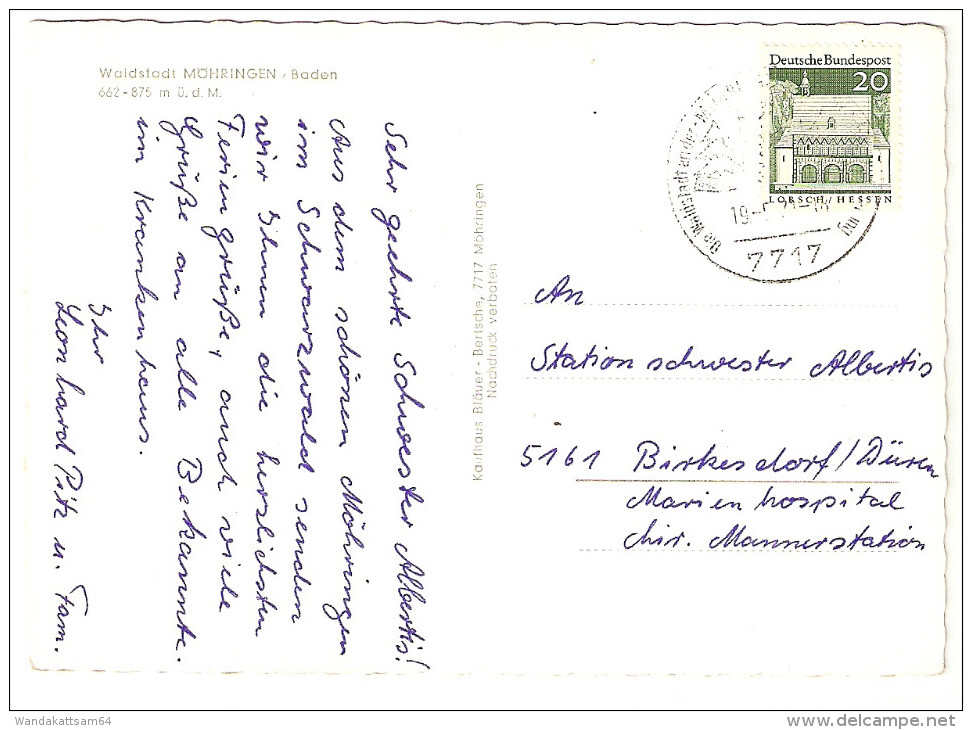 Waldstadt MÖHRINGEN / Baden
662-875 m ü. d. M.
Sehr geehrte Schwester Albertis!
Aus dem schönen Möhringen
im Schwarzwald senden
wir Ihnen die herzlichsten
Feriengrüße, auch viele
Grüße an alle Bekannte.
im Krankenhaus.
Ihr
Leonhard Pitz u. Fam.
Kaufhaus Bläuer - Bertsche, 7717 Möhringen
Nachdruck verboten
Deutsche Bundespost
20
LORSCH / HESSEN
Die Waldstadt an der
7717
An
Stationschwester Albertis
5161 Birkesdorf/Düren
Marienhospital
chir. Mannerstation
Wandakattsam64
www.delcampe.net